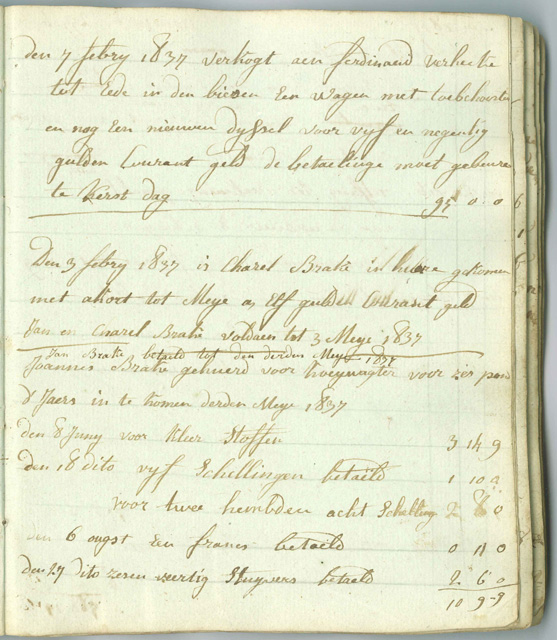 den 7 febry 1837 verkogt aen ferdinand verhecke
tot Eede in den biesen Een wagen met toebehoorten
en nog Een nieuwen dyssel voor vyf en negentig
gulden Courant geld de betaelinge moet gebeuren
te Kerst dag 95 0 0
Den 3 febry 1837 is Charel Brake in heure gekomen
met akort tot Meye as Elf gulden Courant geld
Jan en Charel Brake voldaen tot 3 Meye 1837
Jan Brake betaeld tot den derden Mey 1837
Joannes Brake gehuerd voor koeywagter voor zes pon
d' Jaers in te komen derden Meye 1837
den 8 Juny voor kleer Stoffen 3 14 9
den 18 dito vyf Schellingen betaeld 1 10
voor twee hembden acht Schelling 2 8 0
den 6 ougst Een francs betaeld 0 11 0
den 27 dito zesen veertig Stuyvers betaeld 2 6 0
10 9-9